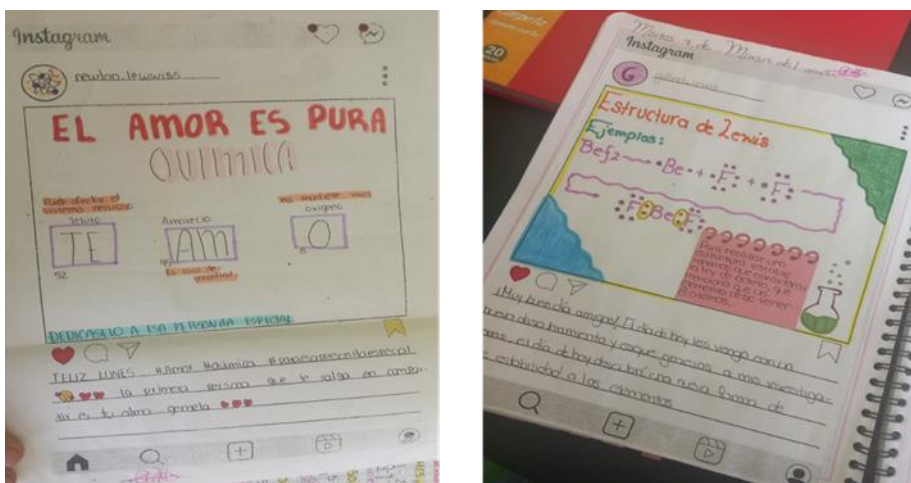 Instagram
newton.lewwiss
EL AMOR ES PURA
QUIMICA
Puede afectar el
sistema nervioso
Teluro
TE
52
Americio
AM
95
nos mantiene vivos
oxigeno
O
8
DEDICASELO A ESA PERSONITA ESPECIAL
FELIZ LUNES #Amor #Quimica #paraesapersonitaespecial
la primera persona que te salga en compar-
tir es tu alma gemela
20
Instagram
G
Estructura de Lewis
Ejemplos:
Bef2 Be + F + F
F Be F
Para realizar una
estructura estable
tenemos que considerar
la ley de octeto, que
menciona que un
elemento debe tener
8
¡Muy buen día amigos! El día de hoy les vengo con un
nuevo descubrimiento y es que gracias a mis investiga-
el día de hoy descubrí una nueva forma de
estabilidad a los elementos